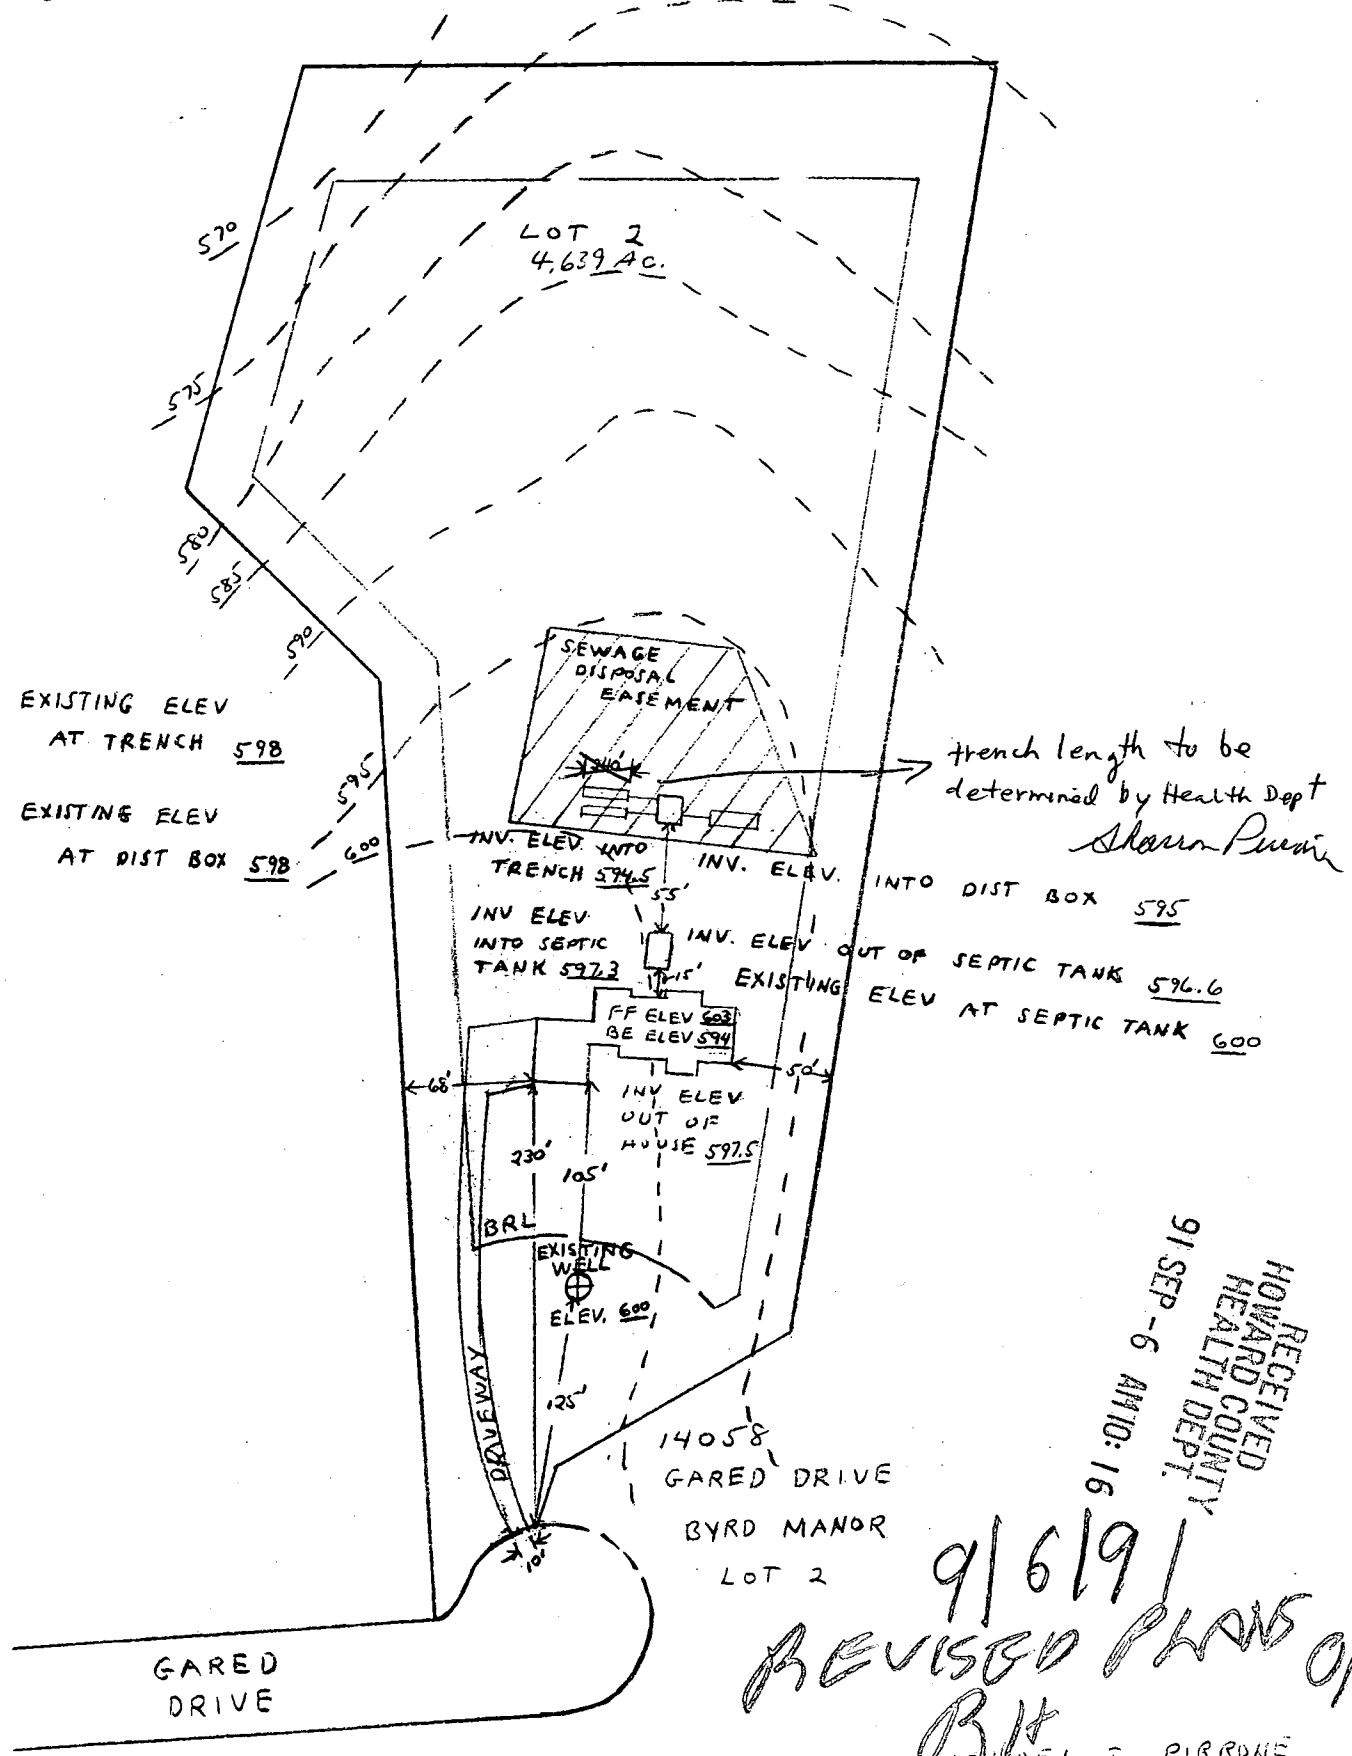 570
LOT 2
4,639 Ac.
575
580
585
590
SEWAGE
DISPOSAL
EASEMENT
EXISTING ELEV
AT TRENCH 598
595
EXISTING ELEV
AT DIST BOX 598
600
240'
trench length to be
determined by Health Dept
INV. ELEV INTO
TRENCH 594.5
INV. ELEV. INTO DIST BOX 595
55'
INV ELEV
INTO SEPTIC
TANK 597.3
INV. ELEV OUT OF SEPTIC TANK 596.6
15'
EXISTING ELEV AT SEPTIC TANK 600
FF ELEV 603
BE ELEV 594
68'
50'
INV ELEV
OUT OF
HOUSE 597.5
230'
105'
BRL
EXISTING
WELL
ELEV. 600
DRIVEWAY
125'
10'
14058
GARED DRIVE
BYRD MANOR
LOT 2
RECEIVED
HOWARD COUNTY
HEALTH DEPT.
91 SEP -6 AM 10:16
9/6/91
REVISED PLANS
GARED
DRIVE